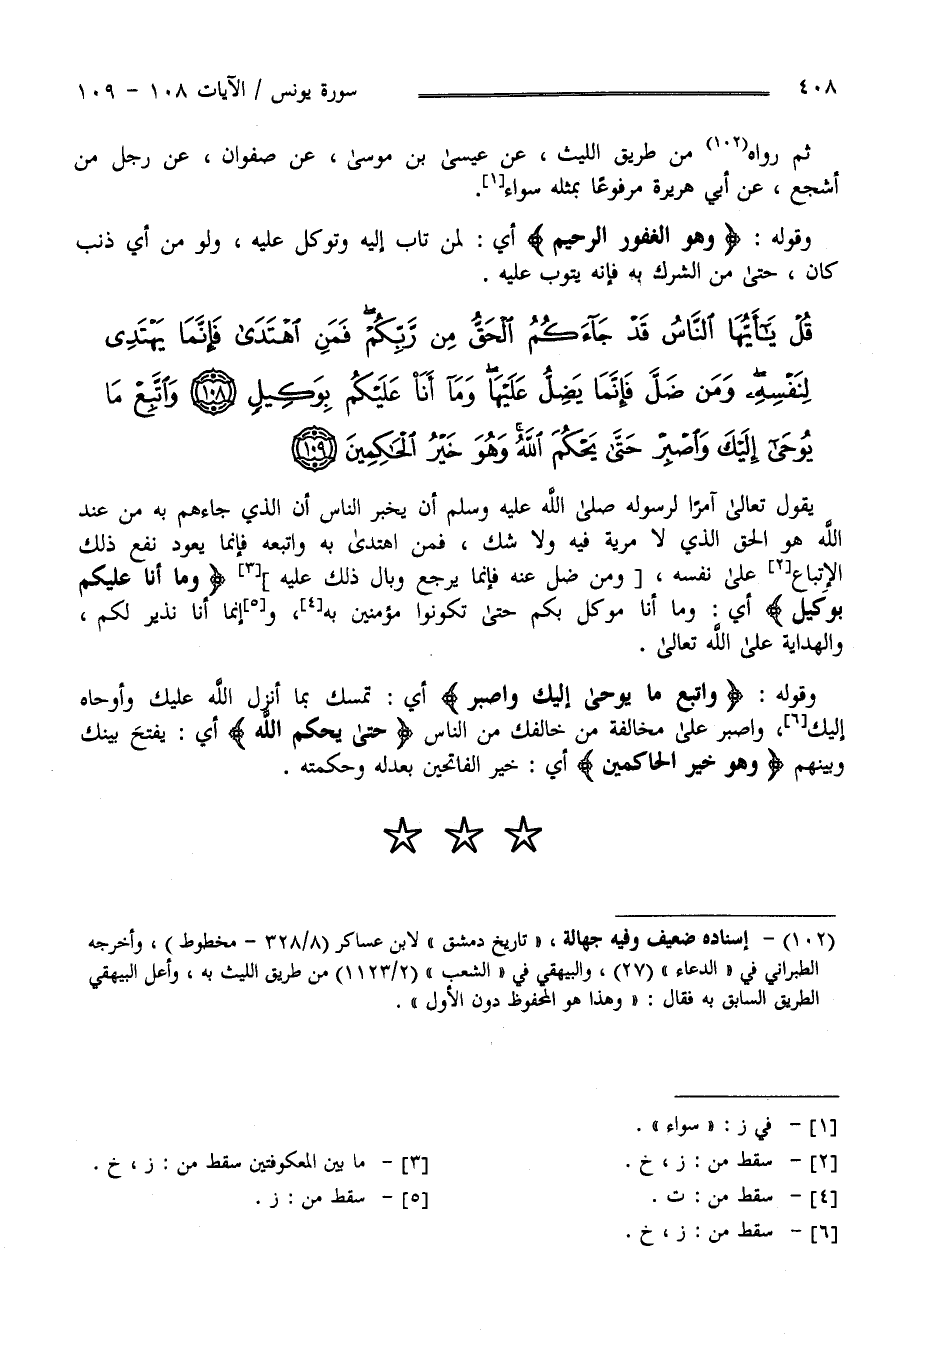 ٤٠٨ سورة يونس / الآيات ١٠٨ - ١٠٩
ثم رواه(١٠٢) من طريق الليث ، عن عيسىٰ بن موسىٰ ، عن صفوان ، عن رجل من
أشجع ، عن أبي هريرة مرفوعًا بمثله سواء[١].
وقوله : ﴿ وهو الغفور الرحيم ﴾ أي : لمن تاب إليه وتوكل عليه ، ولو من أي ذنب
كان ، حتىٰ من الشرك به فإنه يتوب عليه .
قُلْ يَٰٓأَيُّهَا ٱلنَّاسُ قَدْ جَآءَكُمُ ٱلْحَقُّ مِن رَّبِّكُمْ ۖ فَمَنِ ٱهْتَدَىٰ فَإِنَّمَا يَهْتَدِى
لِنَفْسِهِۦ ۖ وَمَن ضَلَّ فَإِنَّمَا يَضِلُّ عَلَيْهَا ۖ وَمَآ أَنَا۠ عَلَيْكُم بِوَكِيلٍ ﴿١٠٨﴾ وَٱتَّبِعْ مَا
يُوحَىٰٓ إِلَيْكَ وَٱصْبِرْ حَتَّىٰ يَحْكُمَ ٱللَّهُ ۚ وَهُوَ خَيْرُ ٱلْحَٰكِمِينَ ﴿١٠٩﴾
يقول تعالىٰ آمرًا لرسوله صلىٰ اللَّه عليه وسلم أن يخبر الناس أن الذي جاءهم به من عند
اللَّه هو الحق الذي لا مرية فيه ولا شك ، فمن اهتدىٰ به واتبعه فإنما يعود نفع ذلك
الإتباع[٢] علىٰ نفسه ، [ ومن ضل عنه فإنما يرجع وبال ذلك عليه ][٣] ﴿ وما أنا عليكم
بوكيل ﴾ أي : وما أنا موكل بكم حتىٰ تكونوا مؤمنين به[٤]، و[٥]إنما أنا نذير لكم ،
والهداية علىٰ اللَّه تعالىٰ .
وقوله : ﴿ واتبع ما يوحىٰ إليك واصبر ﴾ أي : تمسك بما أنزل اللَّه عليك وأوحاه
إليك[٦]، واصبر علىٰ مخالفة من خالفك من الناس ﴿ حتىٰ يحكم اللَّه ﴾ أي : يفتحَ بينك
وبينهم ﴿ وهو خير الحاكمين ﴾ أي : خير الفاتحين بعدله وحكمته .
(١٠٢) - إسناده ضعيف وفيه جهالة ، « تاريخ دمشق » لابن عساكر (٣٢٨/٨ - مخطوط ) ، وأخرجه
الطبراني في « الدعاء » (٢٧) ، والبيهقي في « الشعب » (١١٢٣/٢) من طريق الليث به ، وأعل البيهقي
الطريق السابق به فقال : « وهذا هو المحفوظ دون الأول » .
[١] - في ز : « سواء » .
[٢] - سقط من : ز ، خ . [٣] - ما بين المعكوفتين سقط من : ز ، خ .
[٤] - سقط من : ت . [٥] - سقط من : ز .
[٦] - سقط من : ز ، خ .